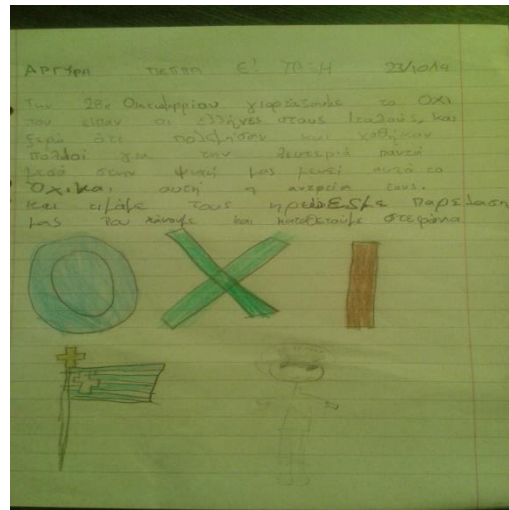 ΑΡΓΥΡΗ ΠΕΠΠΑ Ε! ΤΑΞΗ 23/10/19
Την 28η Οκτωμρρίου γιορτάζουμε το ΟΧΙ
που είπαν οι Ελλήνες στους Ιταλούς, και
ξερώ ότι πολεμησαν και χαθήκαν
πολλοί για την λευτεριά παντά
μεσά στην ψυχή μας μενεί αυτό το
Όχι και αυτή η ανδρεία τους.
Και τιμάμε τους παρελαση
μας που κάνουμε και καταθετούμε στεφάνια
ΟΧΙ